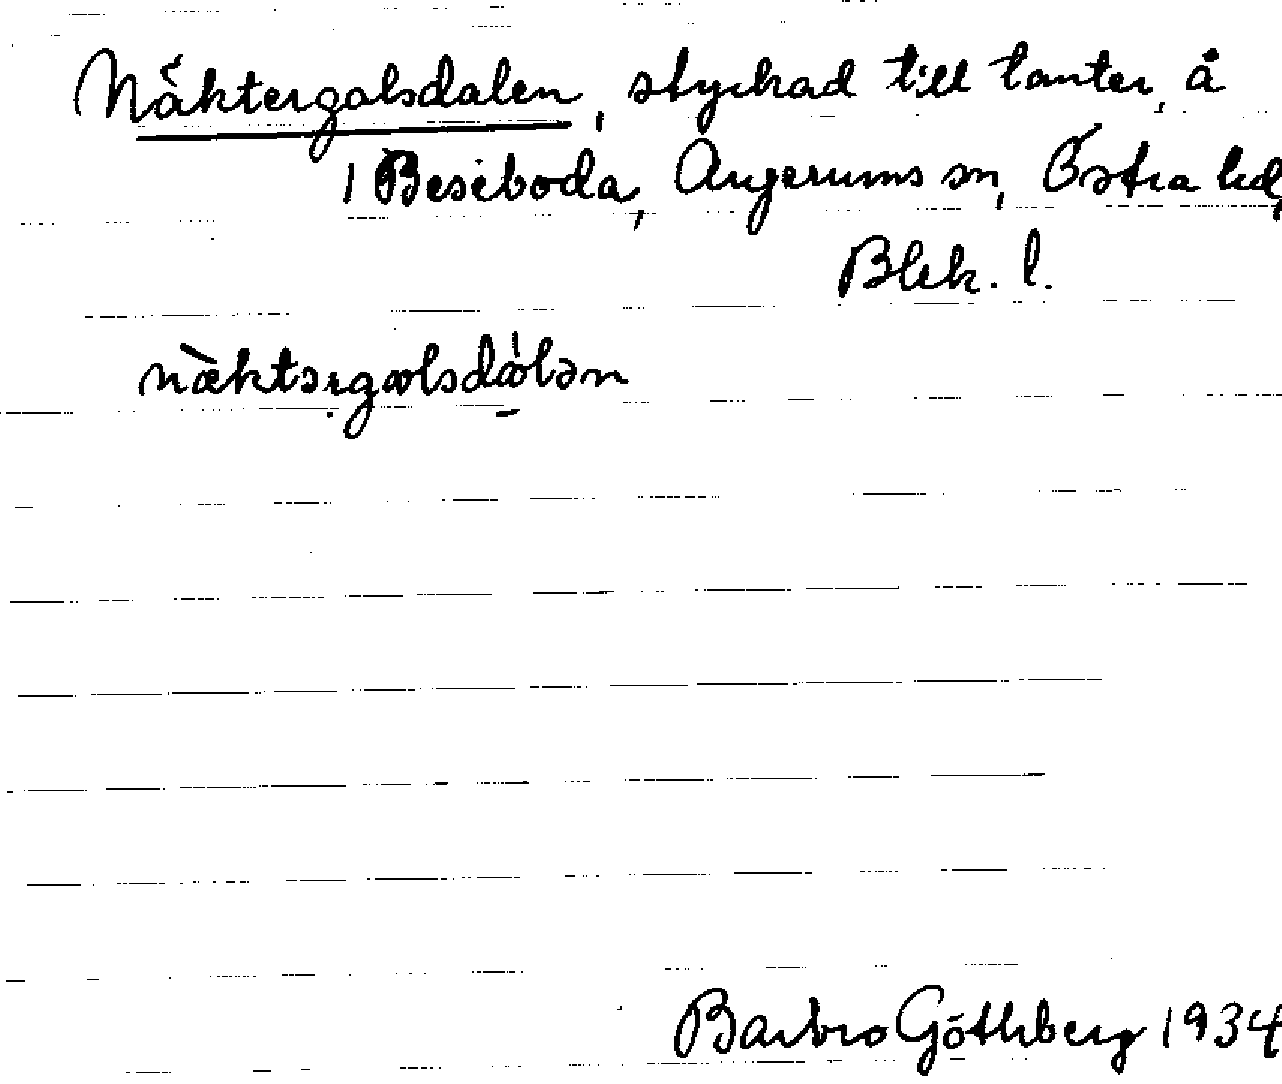 Näktergalsdalen, styckad till tomter, å
1 Beseboda, Augerums sn, Östra hd,
Blek. l.
nàktərgalsdálən
Barbro Göthberg 1934